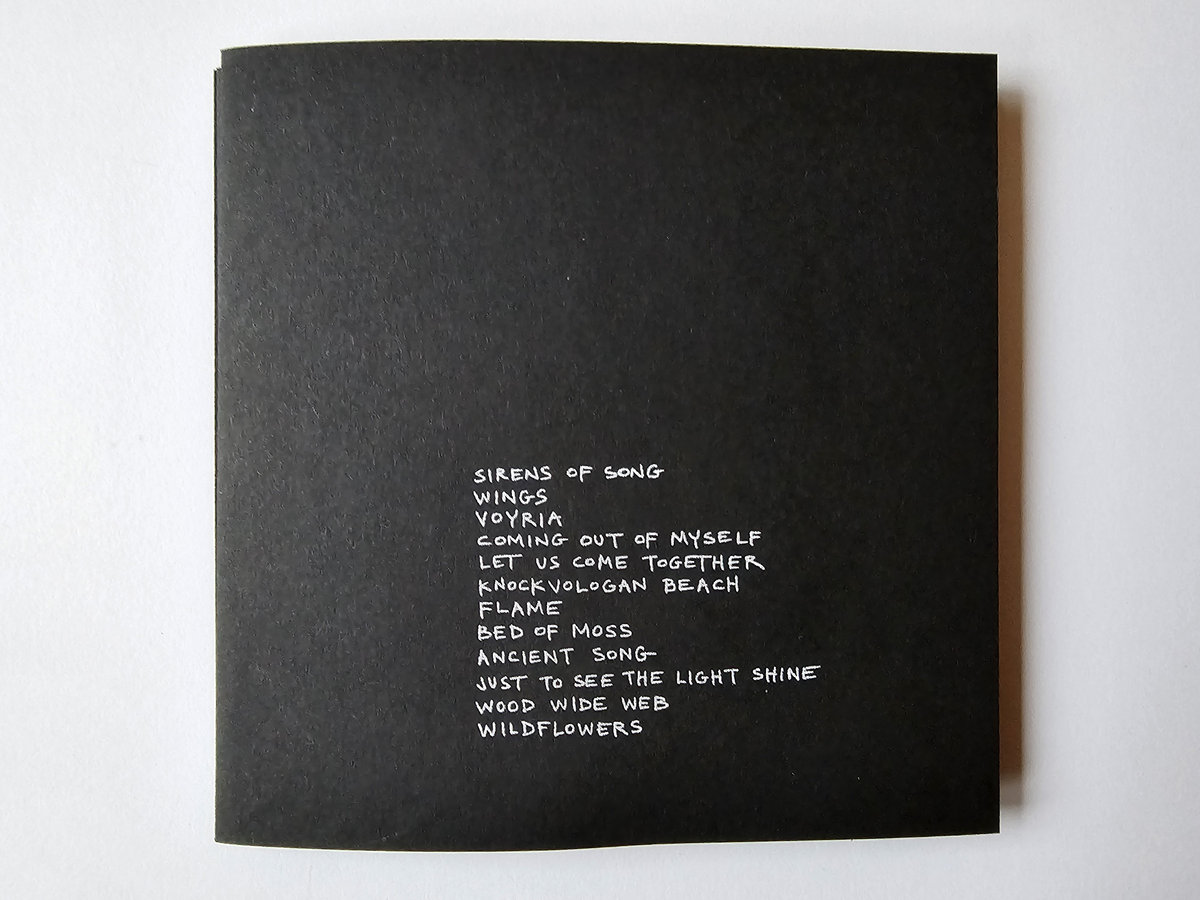 SIRENS OF SONG
WINGS
VOYRIA
COMING OUT OF MYSELF
LET US COME TOGETHER
KNOCKVOLOGAN BEACH
FLAME
BED OF MOSS
ANCIENT SONG
JUST TO SEE THE LIGHT SHINE
WOOD WIDE WEB
WILDFLOWERS